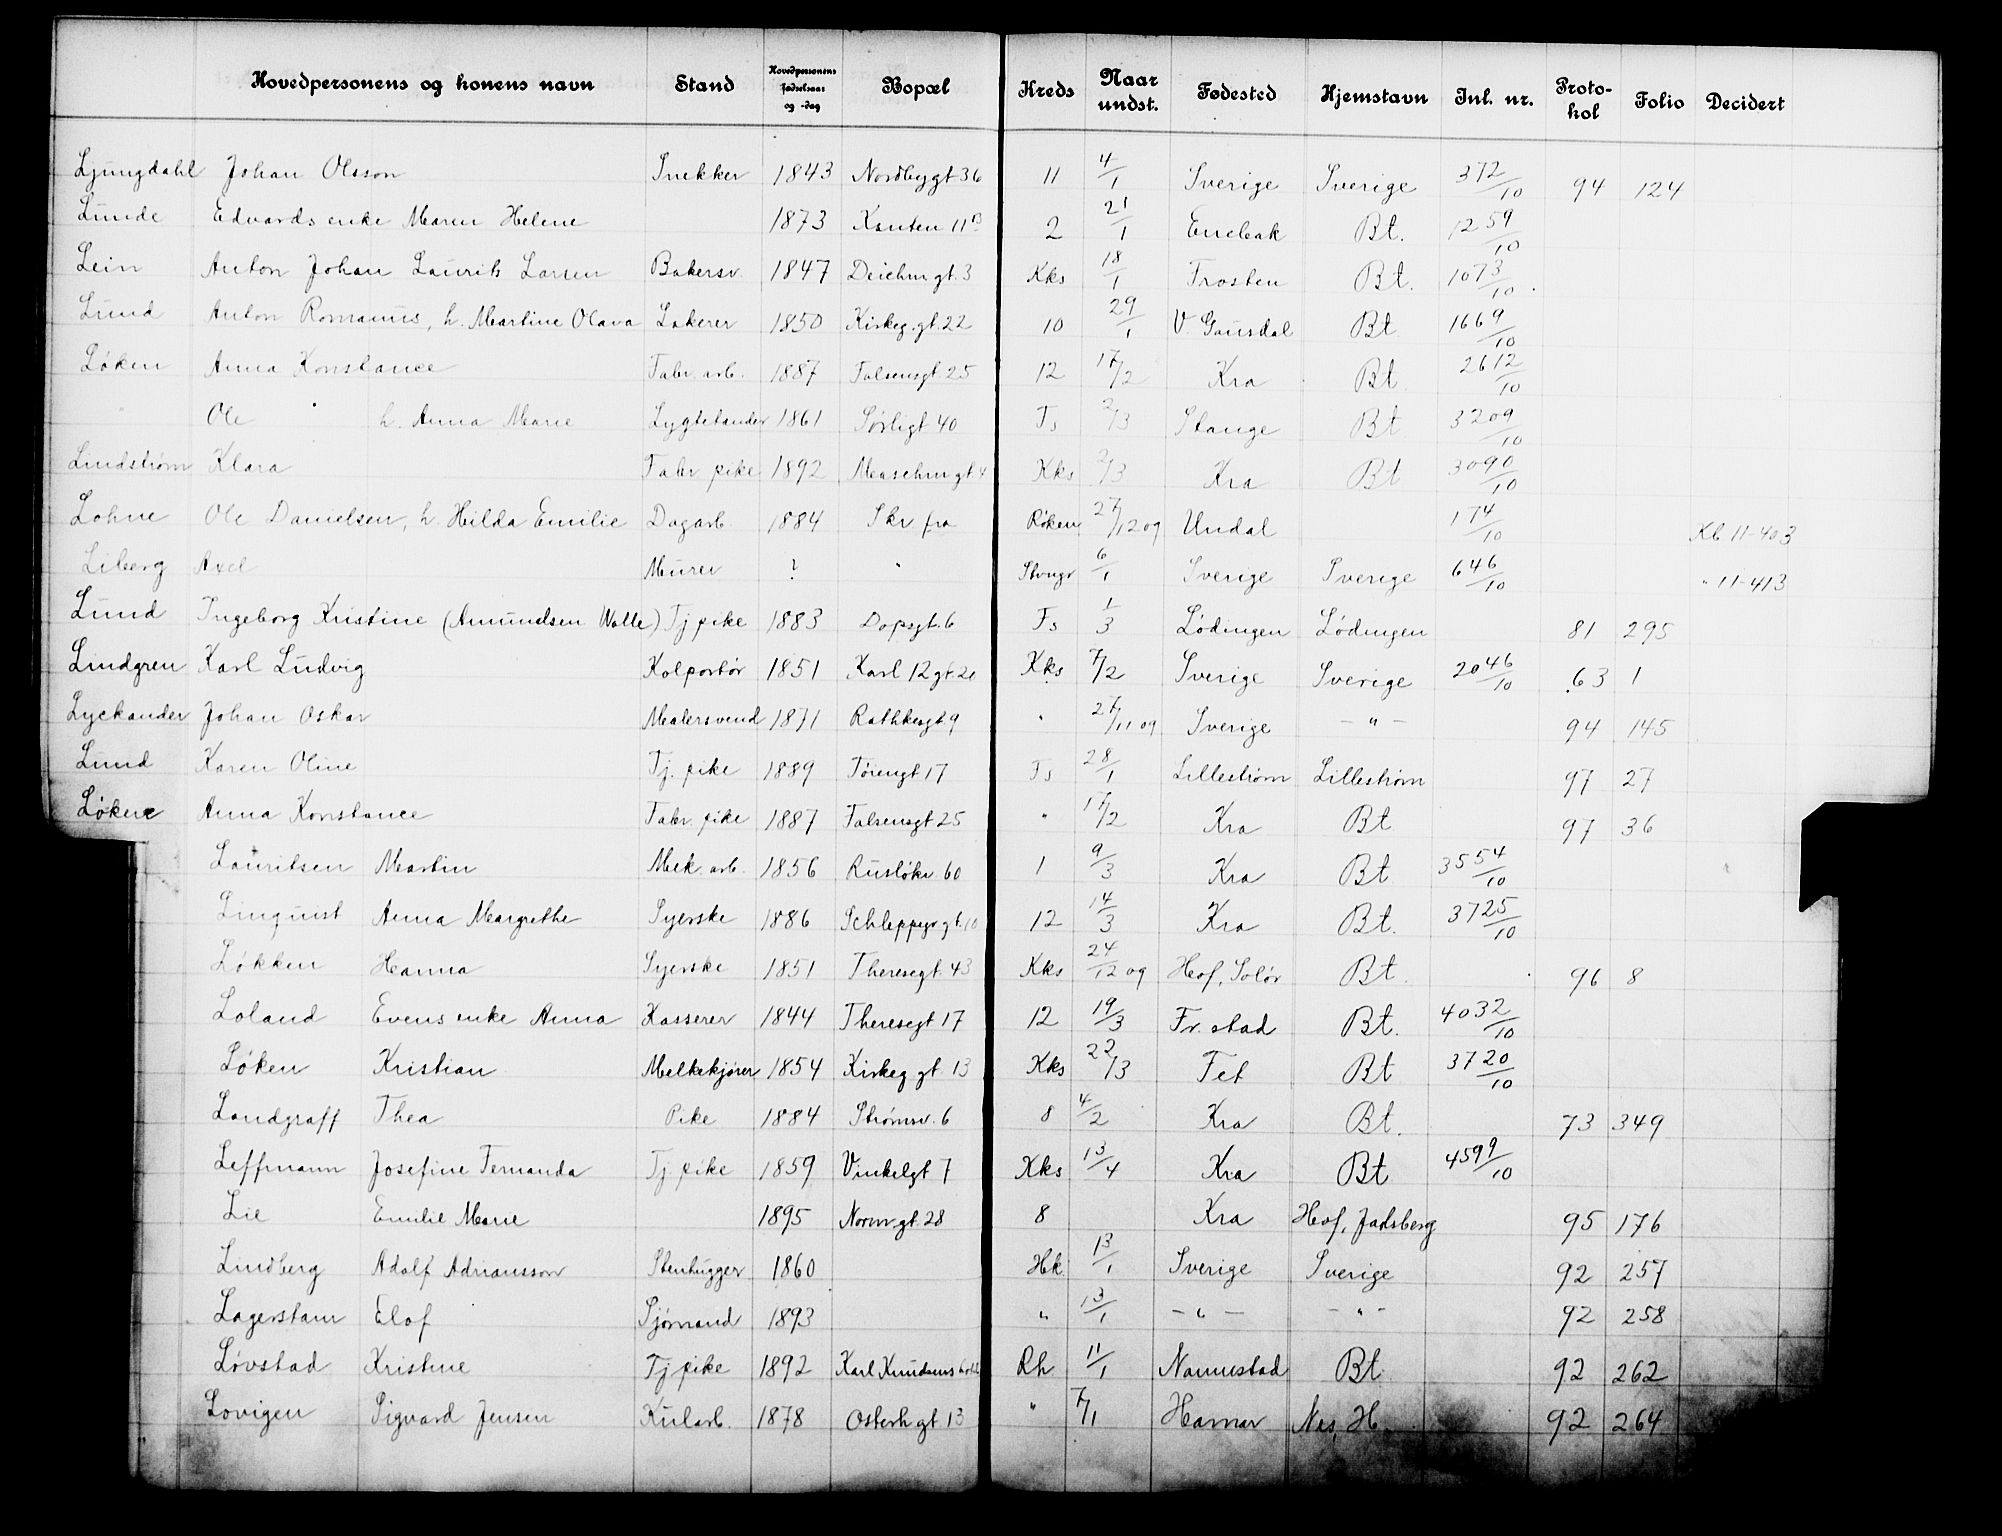 Hovedpersonens og konens navn Stand Hovedpersonens fødselsaar og -dag Bopæl Kreds Naar undst. Fødested Hjemstavn Inl. nr. Protokol Folio Decidert
Ljungdahl Johan Olsson Snekker 1843 Nordbygt 36 11 4/1 Sverige Sverige 372/10 94 124
Lunde Edvards enke Maren Helene 1873 Kanten 11 B 2 21/1 Enebak Bt. 1259/10
Lein Anton Johan Laurits Larsen Bakersv. 1847 Deichm gt. 3 Kks 18/1 Frosten Bt. 1073/10
Lund Anton Romanus, h. Martine Olava Lakerer 1850 Kirkeg. gt. 22 10 29/1 V. Gausdal Bt 1669/10
Løken Anna Konstance Fabr. arb. 1887 Falsensgt. 25 12 17/2 Kra Bt. 2612/10
" Ole h. Anna Marie Lygtetander 1861 Sørligt 40 Ts 2/3 Stange Bt 3209/10
Lindstrøm Klara Fabr pike 1892 Maschm gt 4 Kks 2/3 Kra Bt 3090/10
Lohne Ole Danielsen, h. Hilda Emilie Dagarb. 1884 Skr. fra Røken 27/12 09 Undal 174/10 Kb 11-403
Liberg Axel Murer ? " Stvngr 6/1 Sverige Sverige 646/10 " 11-413
Lund Ingeborg Kristine (Amundsen Walle) Tj pike 1883 Dopsgt. 6 Fs 1/3 Lødingen Lødingen 81 295
Lindgren Karl Ludvig Kolportør 1851 Karl 12 gt. 21 Kks 7/2 Sverige Sverige 2046/10 63 1
Lyckander Johan Oskar Malersvend 1871 Rathkesgt 9 " 27/11 09 Sverige - " - 94 145
Lund Karen Oline Tj. pike 1889 Tøiengt 17 Ts 28/1 Lillestrøm Lillestrøm 97 27
Løken Anna Konstance Fabr. pike 1887 Falsensgt 25 " 17/2 Kra Bt 97 36
Lauritsen Martin Mek. arb. 1856 Rusløkv. 60 1 9/3 Kra Bt 3554/10
Linquist Anna Margrethe Syerske 1886 Schleppegr gt. 10 12 14/3 Kra Bt. 3725/10
Løkken Hanna Syerske 1851 Theresegt. 43 Kks 24/12 09 Hof, Solør Bt. 96 8
Loland Evens enke Anna Kasserer 1844 Theresegt 17 12 19/3 Fr. stad Bt. 4032/10
Løken Kristian Melkekjører 1854 Kirkeg gt. 13 Kks 22/3 Fet Bt 3720/10
Landgraff Thea Pike 1884 Strømsv. 6 8 4/2 Kra Bt. 73 349
Leffmann Josefine Fernanda Tj pike 1859 Vinkelgt 7 Kks 13/4 Kra Bt 4599/10
Lie Emilie Marie 1895 Norm. gt. 28 8 Kra Hof, Jadsberg 95 176
Lindberg Adolf Adriansson Stenhugger 1860 Hk 13/1 Sverige Sverige 92 257
Lagerstam Elof Sjømand 1893 " 13/1 - " - - " - 92 258
Løvstad Kristine Tj pike 1892 Karl Knudsens hotel Rh 11/1 Nannestad Bt 92 262
Lovigen Sigvard Jensen Kularb. 1878 Osterh gt 13 " 7/1 Hamar Nes, H. 92 264